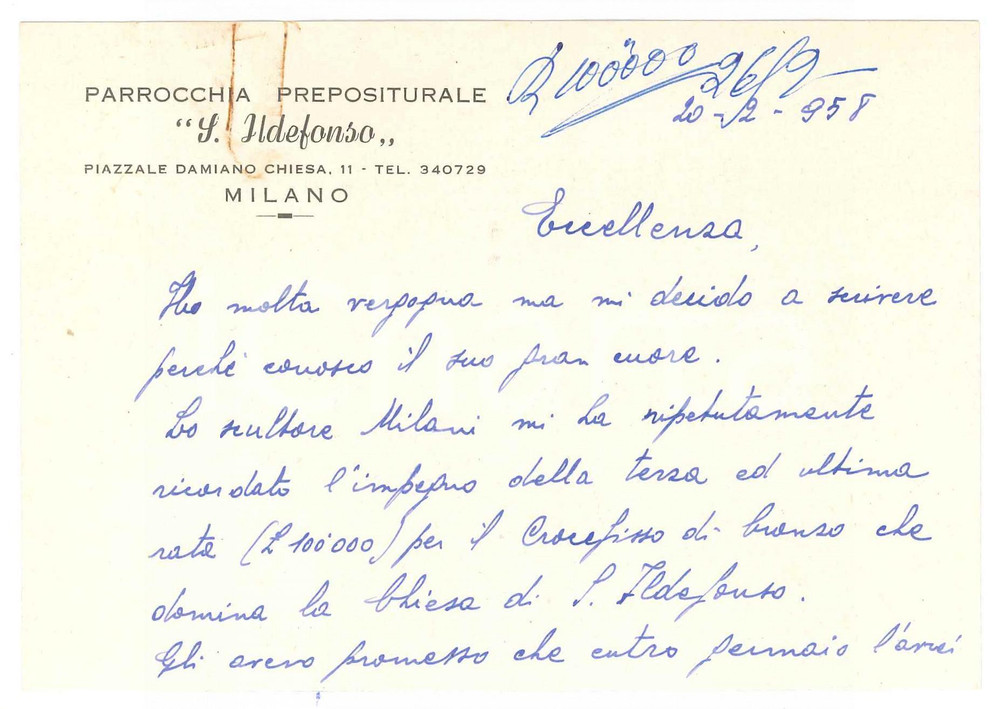 PARROCCHIA PREPOSITURALE
“S. Ildefonso„
PIAZZALE DAMIANO CHIESA, 11 - TEL. 340729
MILANO
£ 100000 26/2
20-2-958
Eccellenza,
Ho molta vergogna ma mi decido a scrivere
perché conosco il suo gran cuore.
Lo scultore Milani mi ha ripetutamente
ricordato l'impegno della terza ed ultima
rata (£ 100000) per il Crocefisso di bronzo che
domina la Chiesa di S. Ildefonso.
Gli avevo promesso che entro gennaio l'avrei